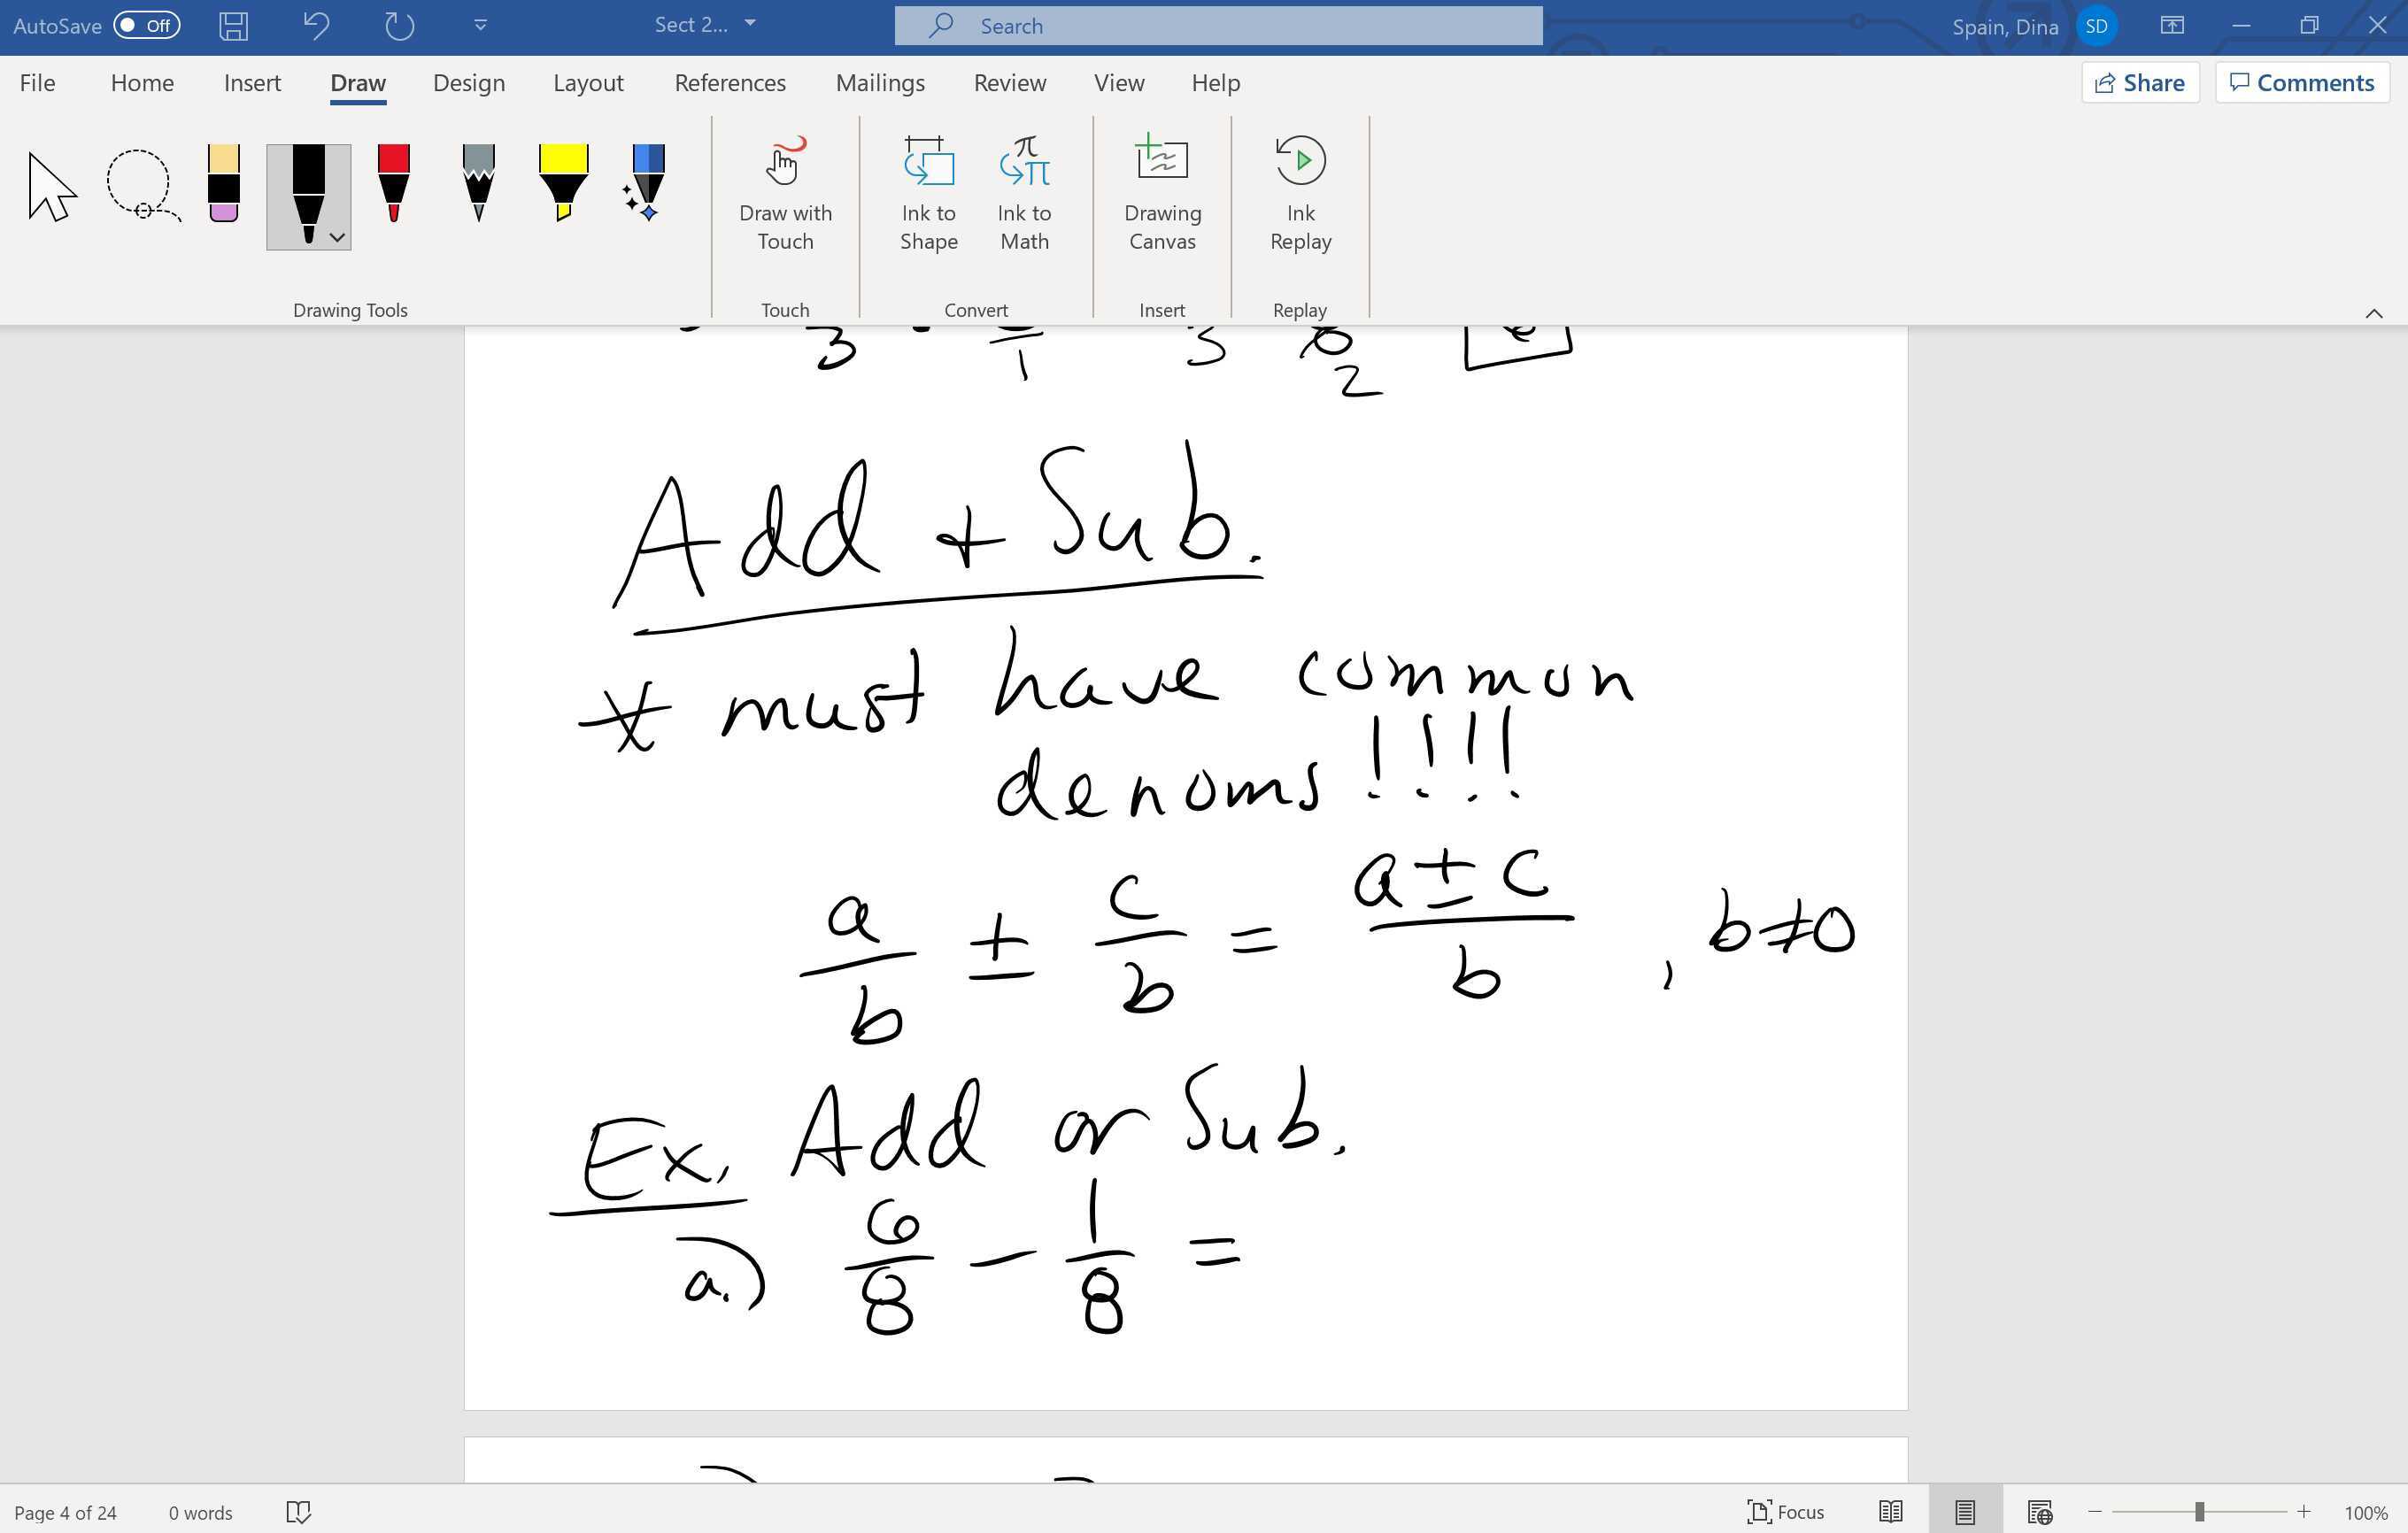 AutoSave Off Sect 2... Search Spain, Dina SD
File Home Insert Draw Design Layout References Mailings Review View Help Share Comments
Draw with Touch
Ink to Shape
Ink to Math
Drawing Canvas
Ink Replay
Drawing Tools Touch Convert Insert Replay
3 1 3 6
2
Add + Sub.
* must have common
denoms!!!!
a/b ± c/b = (a ± c)/b , b≠0
Ex. Add or Sub.
a.) 6/8 − 1/8 =
Page 4 of 24 0 words Focus 100%